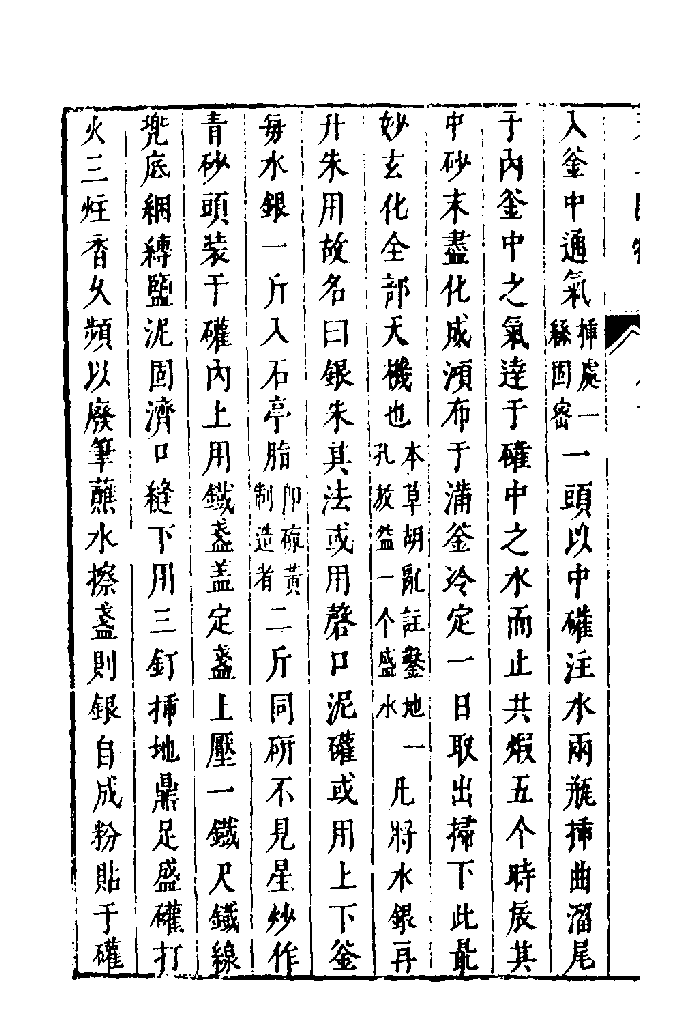 入釜中通氣插處一絲固密一頭以中礶注水兩瓶插曲溜尾
于內釜中之氣逹于礶中之水而止共煆五个時辰其
中砂末盡化成澒布于滿釜冷定一日取出掃下此最
妙玄化全部天機也本草胡亂註鑿地一孔放盌一个盛水一凡將水銀再
升朱用故名曰銀朱其法或用磬口泥礶或用上下釜
每水銀一斤入石亭脂即硫黃制造者二斤同研不見星炒作
青砂頭装于礶內上用鐵盞盖定盞上壓一鐵尺鐵線
兠底綑縛鹽泥固濟口縫下用三釘插地鼎足盛礶打
火三炷香久頻以廢筆蘸水擦盞則銀自成粉貼于礶